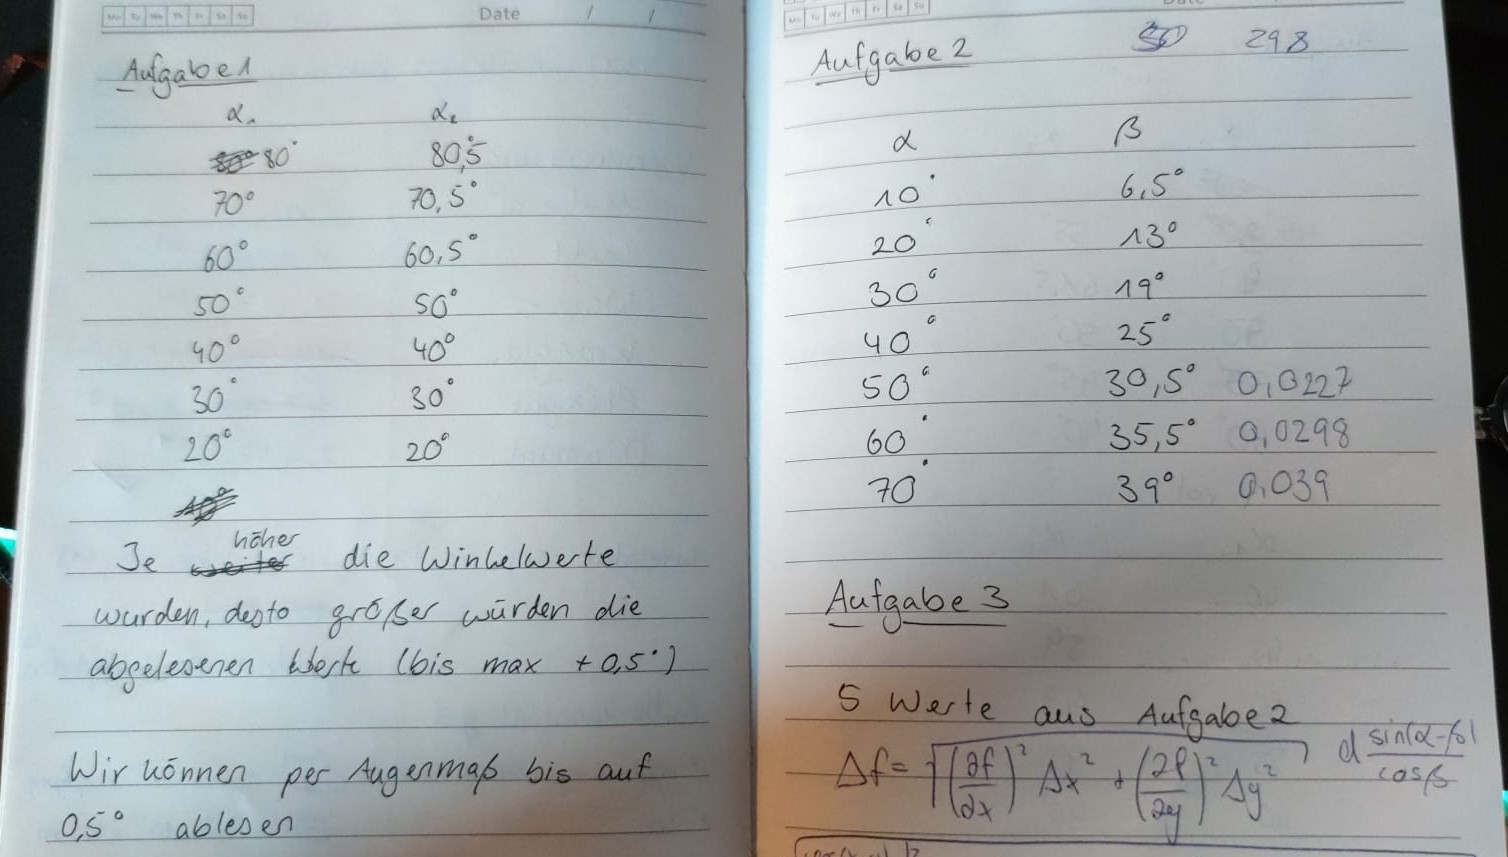 Mo Tu We Th Fr Sa Su Date / /
Aufgabe 1
α₁ α₂
80° 80,5°
70° 70,5°
60° 60,5°
50° 50°
40° 40°
30° 30°
20° 20°
höher
Je weiter die Winkelwerte
wurden, desto größer würden die
abgelesenen Werte (bis max +0,5°)
Wir können per Augenmaß bis auf
0,5° ablesen
Mo Tu We Th Fr Sa Su
Aufgabe 2 298
α β
10° 6,5°
20° 13°
30° 19°
40° 25°
50° 30,5° 0,0227
60° 35,5° 0,0298
70° 39° 0,039
Aufgabe 3
5 Werte aus Aufgabe 2
Δf = √((∂f/∂x)² Δx² + (∂f/∂y)² Δy²) d sin(α-β)/cosβ